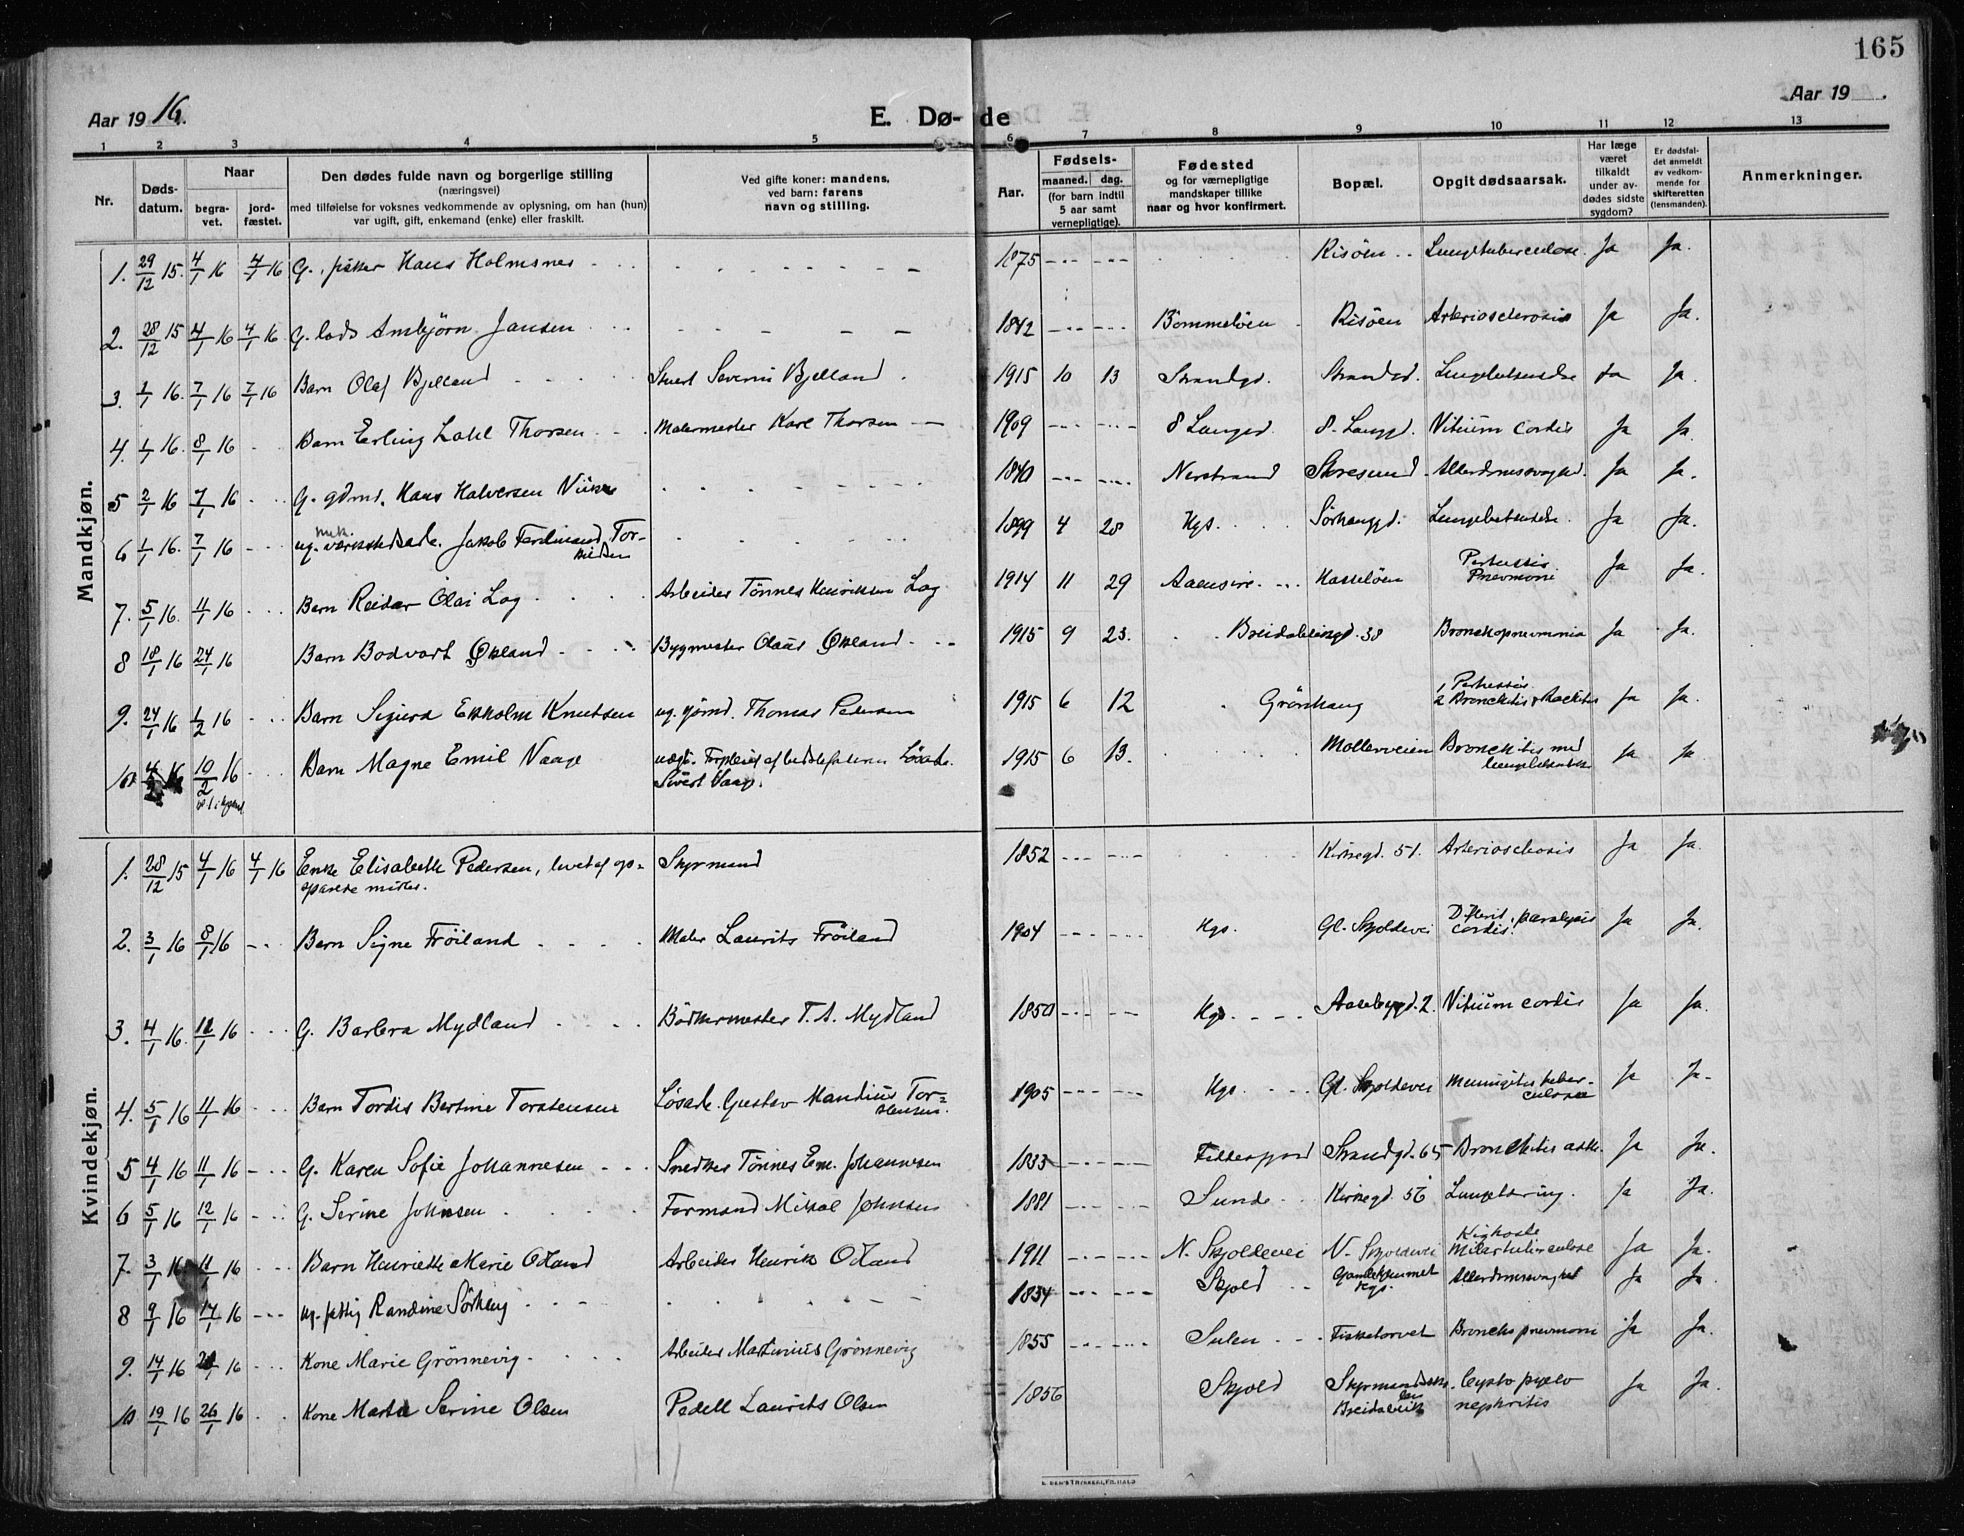 165
Aar 19 16.
E. Dø- de
Aar 19 .
1 2 3 4 5 6 7 8 9 10 11 12 13
Nr.
Døds-
datum.
Naar
begra-
vet.
jord-
fæstet.
Den dødes fulde navn og borgerlige stilling
(næringsvei)
med tilføielse for voksnes vedkommende av oplysning, om han (hun)
var ugift, gift, enkemand (enke) eller fraskilt.
Ved gifte koner: mandens,
ved barn: farens
navn og stilling.
Aar.
Fødsels-
maaned. dag.
(for barn indtil
5 aar samt
vernepligtige).
Fødested
og for værnepligtige
mandskaper tillike
naar og hvor konfirmert.
Bopæl.
Opgit dødsaarsak.
Har læge
været
tilkaldt
under av-
dødes sidste
sygdom?
Er dødsfal-
det anmeldt
av vedkom-
mende for
skifteretten
(lensmanden).
Anmerkninger.
Mandkjøn.
1. 29/12 15. 4/1 16 4/1 16 G. fisker Hans Holmsnes 1875 Risöen Lungetuberculose Ja Ja.
2. 28/12 15 4/1 16 4/1 16 G. lods Ambjörn Jansen 1842 Bömmeløen Risöen Arteriosclerosis Ja Ja.
3. 1/1 16. 7/1 16 7/1 16 Barn Olaf Bjelland Stuert Severin Bjelland. 1915 10 13 Strandgd. Strandgd. Ja Ja.
4. 1/1 16. 8/1 16 Barn Erling Thorsen Malermester Karl Thorsen 1909 8. Langgd. Vitium cordis Ja Ja.
5 2/1 16 7/1 16 G. gdmd. Hans Halversen 1840 Nerstrand Alderdomssvaghed. Ja Ja.
6 1/1 16. 7/1 16 ug. mek. værkstedsarb. Jakob Ferdinand Tor-
kildsen 1899 4 28 Hgs. Sørhauggd. Lungebetendelse. Ja Ja.
7. 5/1 16. 11/1 16 Barn Reidar Olai Log Arbeider Tönnes Henriksen Log 1914 11 29 Aaensire Hasseløen Pertussis.
Pneumoni Ja Ja.
8 18/1 16 24/1 16 Barn Bodvart Økland Bygmester Olaus Økland 1915 9 23. Breidablingd. 38 Bronchopneumonia Ja Ja.
9. 24/1 16 1/2 16 Barn Sigurd Ekholm Knutsen ug. sjömd. Thomas Pedersen 1915 6 12 Grönhaug 1 Pertussis
2 Bronchitis & Rachitis Ja Ja.
10. 16 10/2 16 Barn Magne Emil Vaage Løsarb.
Sivert Vaage. 1915 6 13. Møllerveien Bronchitis med
lungebetendelse Ja Ja.
Kvindekjøn.
1. 28/12 15 4/1 16 4/1 16 Enke Elisabeth Pedersen, levet af op-
sparede midler. Styrmand 1852 Kirkegd. 51. Arteriosclerosis Ja Ja
2. 3/1 16 8/1 16 Barn Signe Fröiland Maler Laurits Fröiland 1904 Hgs. Gl. Skjoldevei Difterit. paralysis
cordis. Ja Ja.
3. 4/1 16 16 G. Barbra Mydland Bödkermester T. A. Mydland 1850 Hgs. Aasbyggd. 2. Vitium cordis Ja Ja.
4. 5/1 16 11/1 16 Barn Tordis Bertine Torstensen Løsarb. Gustav Mandius Tor=
stensen. 1905 Hgs. Gl. Skjoldevei Meningitis tuber-
culosa Ja Ja.
5 4/1 16 11/1 16 G. Karen Sofie Johannesen Snedker Tönnes Em. Johannesen 1833 Strandgd. 65 Bronchitis Ja Ja.
6 5/1 16 12/1 16 G. Serine Johnsen Formand Mikal Johnsen 1881 Sunde Kirkegd. 56 Lungetæring. Ja Ja.
7. 3/1 16 11/1 16 Barn Henriette Marie Odland Arbeider Henrik Odland 1911 N. Skjoldevei N. Skjoldevei Kighoste
Miliærtuberculose Ja Ja.
8 9/1 16 17/1 16 ug. fattig Randine Sörhaug 1834 Skjold Gamlehjemmet
Hgs. Alderdomssvaghet Ja Ja
9. 14/1 16 16 Kone Marie Grönnevig Arbeider Martinius Grönnevig 1855 Sulen Fisketorvet Bronchopneumoni Ja Ja.
10 19/1 16 26/1 16 Kone Marta Serine Olsen Pedell Laurits Olsen 1856 Skjold Styrmandssko-
len
Breidablik Cysto pyelo
nephritis Ja Ja.